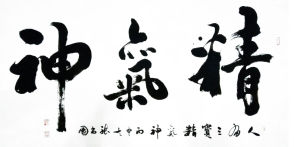 精氣神
人有三寶精氣神丙申七